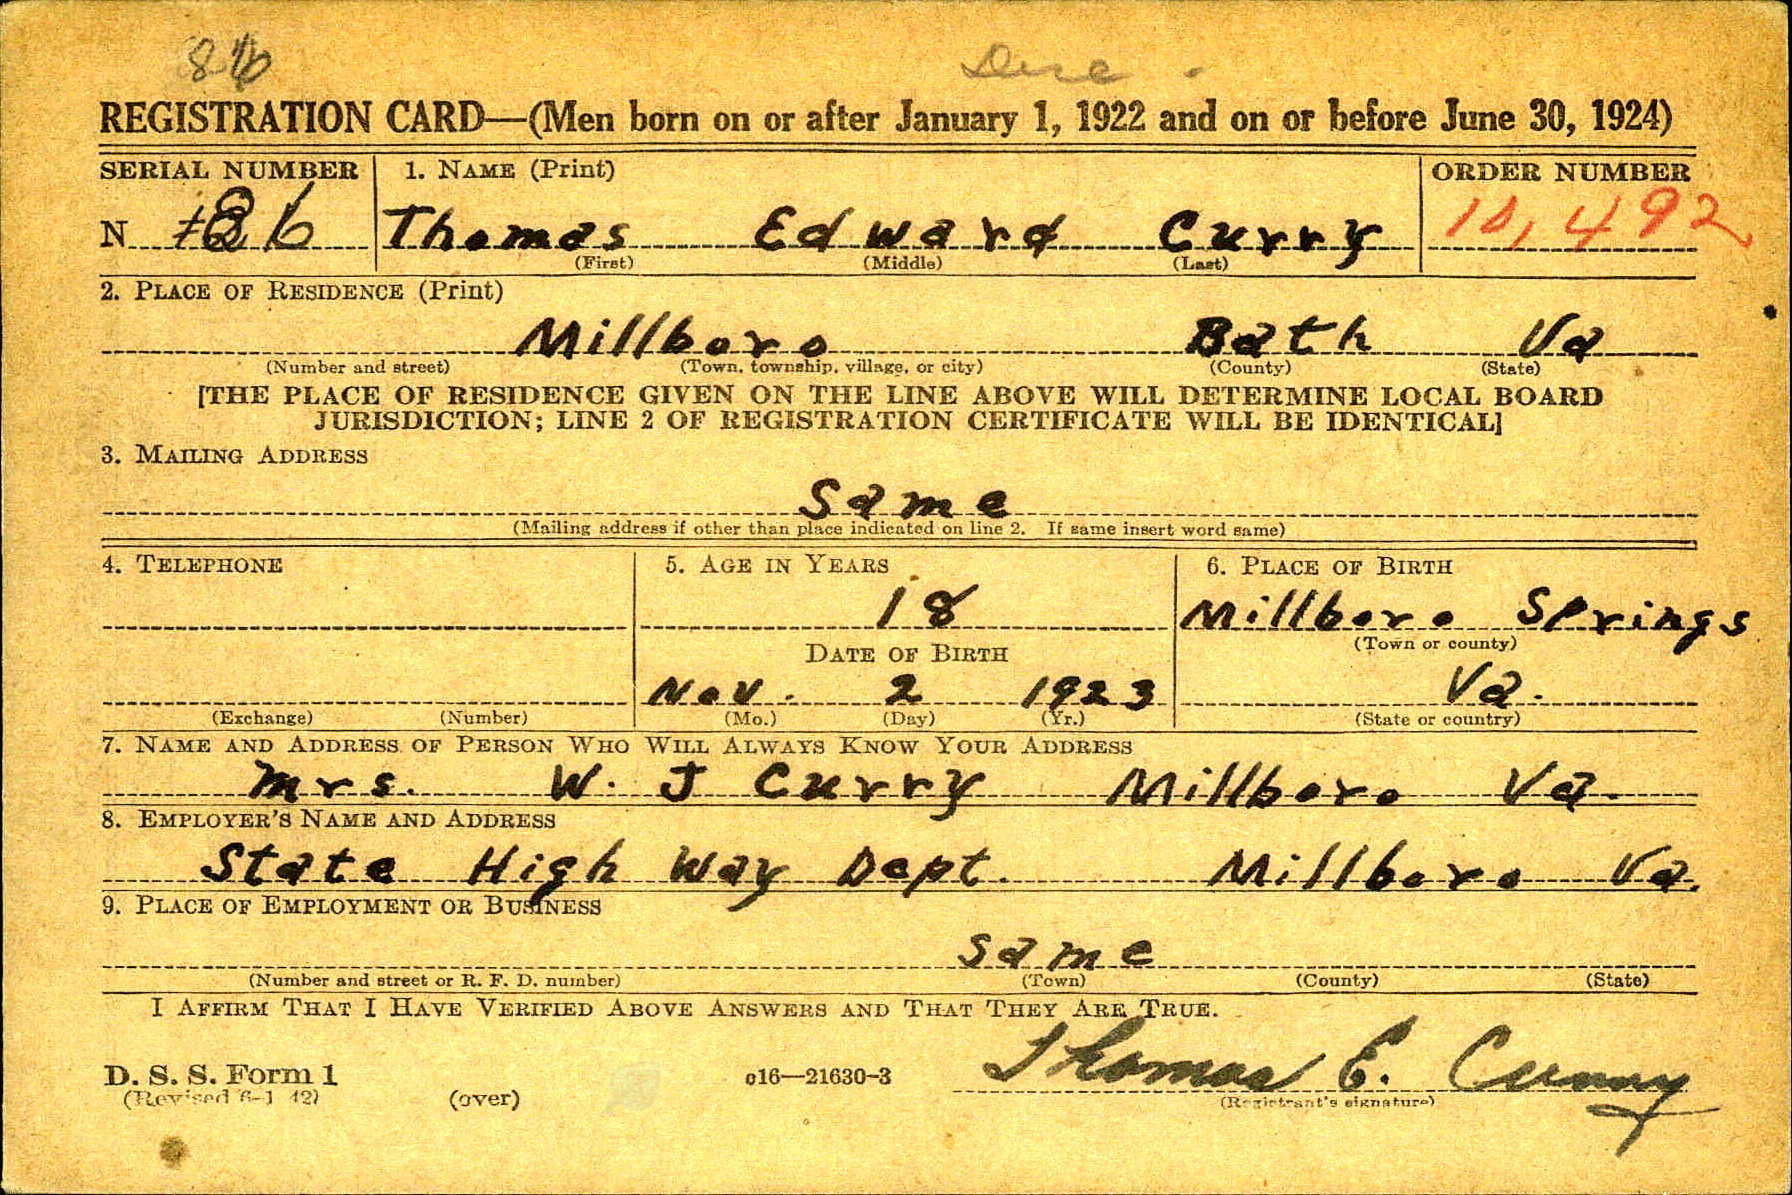 REGISTRATION CARD—(Men born on or after January 1, 1922 and on or before June 30, 1924)
SERIAL NUMBER 1. NAME (Print) ORDER NUMBER
N 86 Thomas Edward Curry 10,492
(First) (Middle) (Last)
2. PLACE OF RESIDENCE (Print)
Millboro Bath Va
(Number and street) (Town, township, village, or city) (County) (State)
[THE PLACE OF RESIDENCE GIVEN ON THE LINE ABOVE WILL DETERMINE LOCAL BOARD
JURISDICTION; LINE 2 OF REGISTRATION CERTIFICATE WILL BE IDENTICAL]
3. MAILING ADDRESS
Same
(Mailing address if other than place indicated on line 2. If same insert word same)
4. TELEPHONE 5. AGE IN YEARS 6. PLACE OF BIRTH
18 Millboro Springs
(Town or county)
DATE OF BIRTH
Nov. 2 1923 Va.
(Exchange) (Number) (Mo.) (Day) (Yr.) (State or country)
7. NAME AND ADDRESS OF PERSON WHO WILL ALWAYS KNOW YOUR ADDRESS
Mrs. W. J Curry Millboro Va.
8. EMPLOYER'S NAME AND ADDRESS
State High Way Dept. Millboro Va.
9. PLACE OF EMPLOYMENT OR BUSINESS
Same
(Number and street or R. F. D. number) (Town) (County) (State)
I AFFIRM THAT I HAVE VERIFIED ABOVE ANSWERS AND THAT THEY ARE TRUE.
Thomas E. Curry
D. S. S. Form 1 c16—21630-3
(Revised 6-1 42) (over) (Registrant's signature)